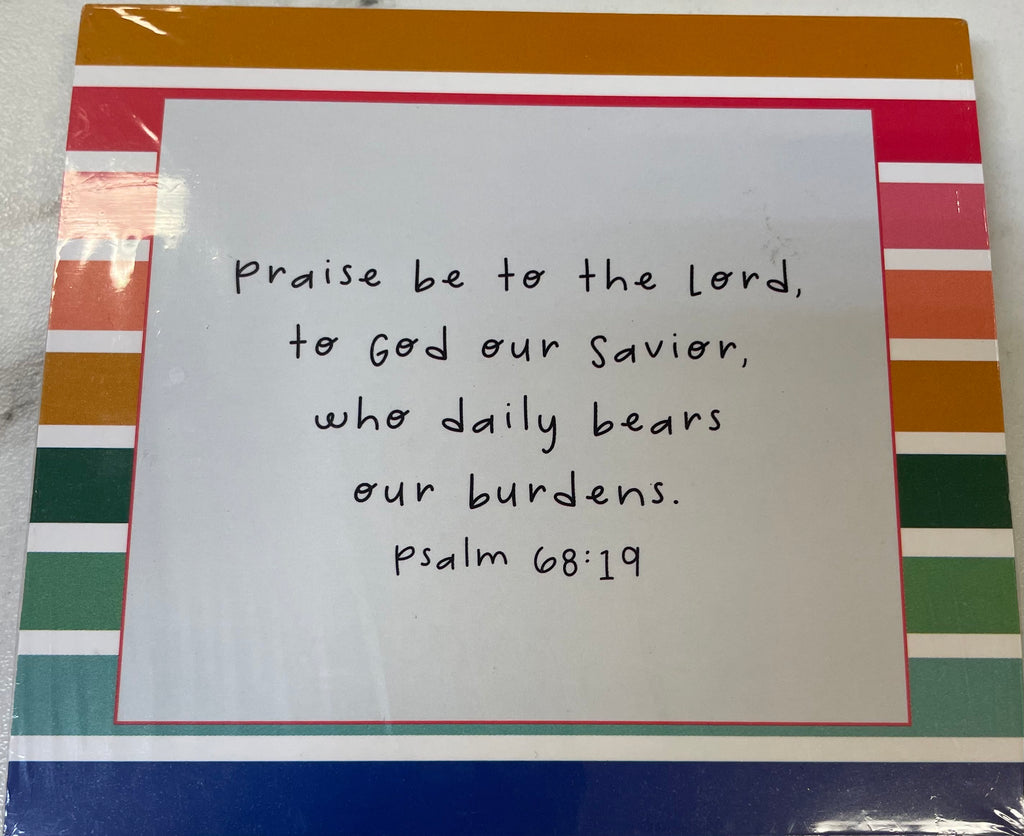 praise be to the Lord,
to God our Savior,
who daily bears
our burdens.
psalm 68:19